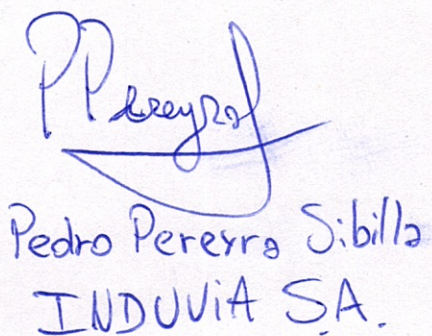 PPereyra
Pedro Pereyra Sibilla
INDUVIA S.A.